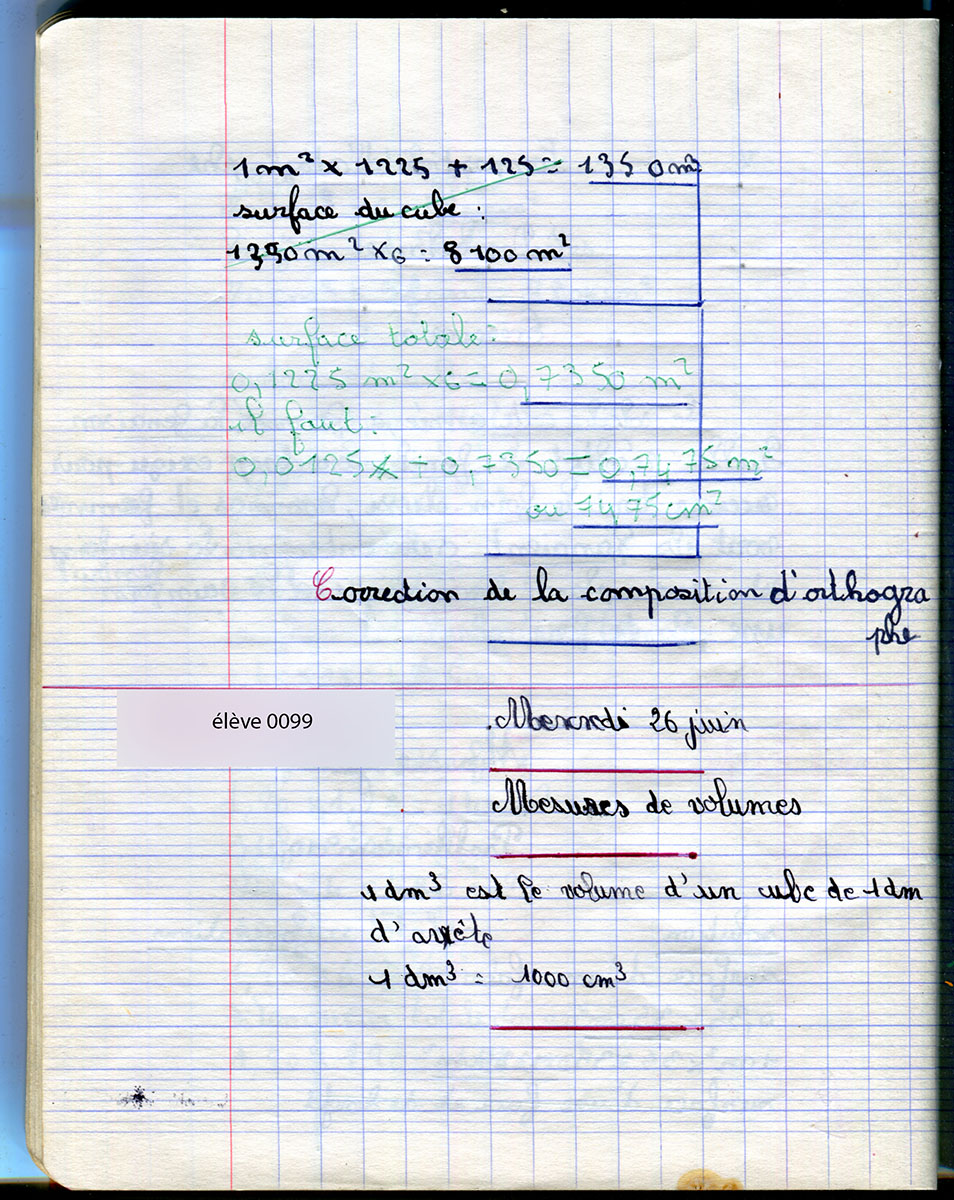 1m² x 1225 + 125 = 1350m²
surface du cube :
1350m² x6 = 8100m²
surface totale :
0,1225 m² x6 = 0,7350 m²
il faut :
0,0125 + 0,7350 = 0,7475m²
ou 7475cm²
Correction de la composition d'orthogra
phe
élève 0099
Mercredi 26 juin
Mesures de volumes
1 dm³ est le volume d'un cube de 1dm
d'arrête
1 dm³ = 1000 cm³